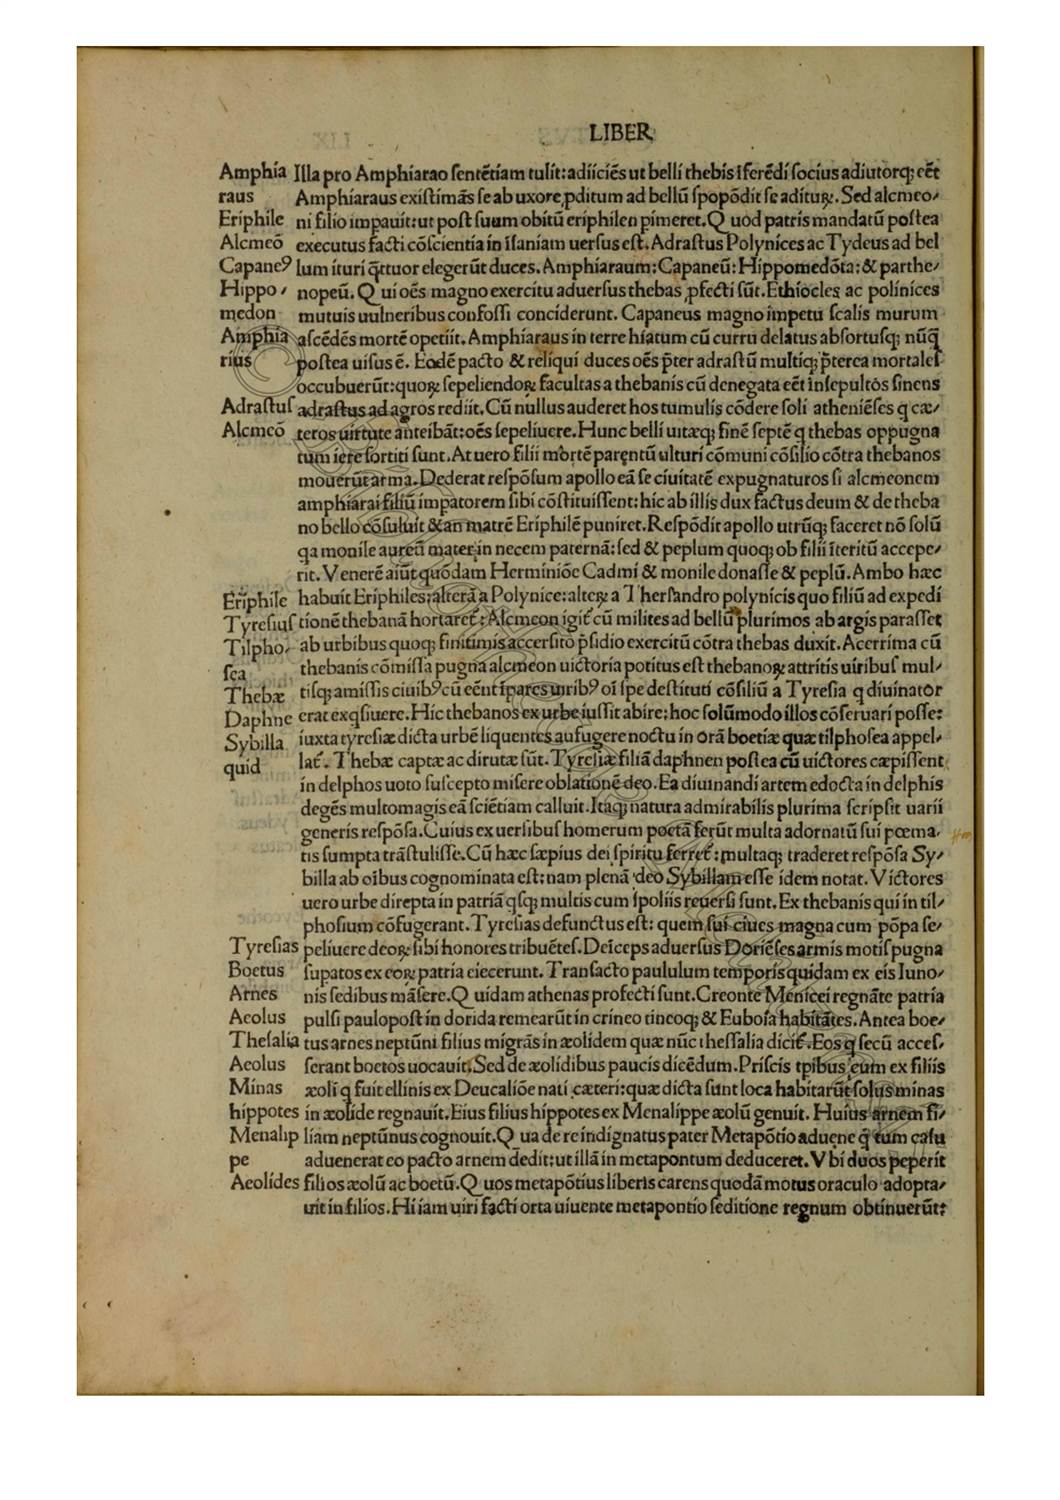 LIBER
Amphia Illa pro Amphiarao ſentētiam tulit: adiiciēs ut belli thebis īferēdi ſocius adiutorq; eēt
raus Amphiaraus exiſtimās ſe ab uxore ꝓditum ad bellū ſpopōdit ſe aditurꝝ. Sed alcmeo/
Eriphile ni filio impauit: ut poſt ſuum obitū eriphilen pimeret. Quod patris mandatū poſtea
Alcmeō executus facti cōſcientia in īſaniam uerſus eſt. Adraſtus Polynices ac Tydeus ad bel
Capaneꝰ lum ituri q̄ttuor elegerūt duces. Amphiaraum: Capaneū: Hippomedōta: & parthe/
Hippo/ nopeū. Qui oēs magno exercitu aduerſus thebas ꝓfecti ſūt. Ethiocles ac polinices
medon mutuis uulneribus confoſſi conciderunt. Capaneus magno impetu ſcalis murum
Amphia aſcēdēs mortē opetiit. Amphiaraus in terre hiatum cū curru delatus abſortuſq; nūq̄
rius poſtea uiſus ē. Eodē pacto & reliqui duces oēs p̄ter adraſtū multiq; p̄terea mortaleſ
occubuerūt: quoꝝ ſepeliendoꝝ facultas a thebanis cū denegata eēt inſepultos ſinens
Adraſtuſ adraſtus ad agros rediit. Cū nullus auderet hos tumulis cōdere ſoli atheniēſes q cæ/
Alcmeō teros uirtute anteibāt: oēs ſepeliuere. Hunc belli uitæq; finē ſeptē q thebas oppugna
tum iere ſortiti ſunt. At uero filii mortē parentū ulturi cōmuni cōſilio cōtra thebanos
mouerūt arma. Dederat reſpōſum apollo eā ſe ciuitatē expugnaturos ſi alcmeonem
amphiarai filiū impatorem ſibi cōſtituiſſent: hic ab illis dux factus deum & de theba
no bello cōſuluit & an matrē Eriphilē puniret. Reſpōdit apollo utrūq; faceret nō ſolū
qa monile aureū mater in necem paternā: ſed & peplum quoq; ob filii īteritū accepe/
rit. Venerē aiūt quōdam Herminiōe Cadmi & monile donaſſe & peplū. Ambo hæc
Eriphile habuit Eriphiles: alterā a Polynice: alteꝝ a Therſandro polynicis quo filiū ad expedi
Tyreſiuſ tionē thebanā hortaret̄: Alcmeon igit̄ cū milites ad bellū plurimos ab argis paraſſet
Tilpho/ ab urbibus quoq; finitimis accerſito p̄ſidio exercitū cōtra thebas duxit. Acerrima cū
ſea thebanis cōmiſſa pugna alcmeon uictoria potitus eſt thebanoꝝ attritis uiribuſ mul/
Thebæ tiſq; amiſſis ciuibꝰ cū eēnt īpares uiribꝰ oī ſpe deſtituti cōſiliū a Tyreſia q diuinator
Daphne erat exqſiuere. Hic thebanos ex urbe iuſſit abire: hoc ſolūmodo illos cōſeruari poſſe:
Sybilla iuxta tyreſiæ dicta urbē liquentes aufugere noctu in orā boetiæ quæ tilphoſea appel/
quid lat̄. Thebæ captæ ac dirutæ ſūt. Tyreſiæ filiā daphnen poſtea cū uictores cæpiſſent
in delphos uoto ſuſcepto miſere oblationē deo. Ea diuinandi artem edocta in delphis
degēs multomagis eā ſciētiam calluit. Itaq; natura admirabilis plurima ſcripſit uarii
generis reſpōſa. Cuius ex uerſibuſ homerum poetā ferūt multa adornatū ſui poema/
tis ſumpta trāſtuliſſe. Cū hæc ſæpius dei ſpiritu ferret̄: multaq; traderet reſpōſa Sy/
billa ab oibus cognominata eſt: nam plenā deo Sybillam eſſe idem notat. Victores
uero urbe direpta in patriā qſq; multis cum ſpoliis reuerſi ſunt. Ex thebanis qui in til/
phoſium cōfugerant. Tyreſias defunctus eſt: quem ſui ciues magna cum pōpa ſe/
Tyreſias peliuere deoꝝ ſibi honores tribuēteſ. Deīceps aduerſus Doriēſes armis motiſ pugna
Boetus ſupatos ex eoꝝ patria eiecerunt. Tranſacto paululum temporis quidam ex eis Iuno/
Arnes nis ſedibus māſere. Quidam athenas profecti ſunt. Creonte Menicei regnāte patria
Aeolus pulſi paulopoſt in dorida remearūt in crineo tincoq; & Euboſa habitātes. Antea boe/
Theſalia tus arnes neptūni filius migrās in æolidem quæ nūc theſſalia dicit̄. Eos q ſecū acceſ/
Aeolus ſerant boetos uocauit. Sed de æolidibus paucis dicēdum. Priſcis tpibus eum ex filiis
Minas æoli q fuit ellinis ex Deucaliōe nati cæteri: quæ dicta ſunt loca habitarūt ſolus minas
hippotes in æolide regnauit. Eius filius hippotes ex Menalippe æolū genuit. Huius arnem fi/
Menalip liam neptūnus cognouit. Qua de re indignatus pater Metapōtio aduene q̄ tum caſu
pe aduenerat eo pacto arnem dedit: ut illā in metapontum deduceret. Vbi duos peperit
Aeolides filios æolū ac boetū. Quos metapōtius liberis carens quodā motus oraculo adopta/
uit in filios. Hi iam uiri facti orta uiuente metapontio ſeditione regnum obtinuerūt: